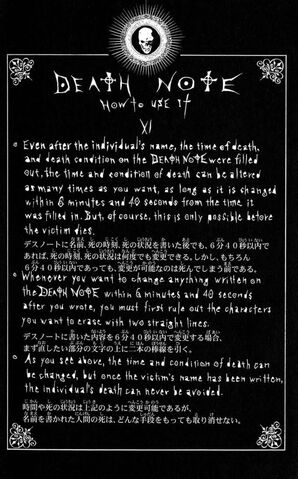 DEATH NOTE
HOW TO USE IT
XI
Even after the individual's name, the time of death,
and death condition on the DEATH NOTE were filled
out, the time and condition of death can be altered
as many times as you want, as long as it is changed
within 6 minutes and 40 seconds from the time it
was filled in. But, of course, this is only possible before
the victim dies.
デスノートに名前、死の時刻、死の状況を書いた後でも、6分40秒以内で
あれば、死の時刻、死の状況は何度でも変更できる。しかし、もちろん
6分40秒以内であっても、変更が可能なのは死んでしまう前である。
Whenever you want to change anything written on
the DEATH NOTE within 6 minutes and 40 seconds
after you wrote, you must first rule out the characters
you want to erase with two straight lines.
デスノートに書いた内容を6分40秒以内で変更する場合、
まず訂したい部分の文字の上に二本の棒線を引く。
As you see above, the time and condition of death can
be changed, but once the victim's name has been written,
the individual's death can never be avoided.
時間や死の状況は上記のように変更可能であるが、
名前を書かれた人間の死は、どんな手段をもっても取り消せない。